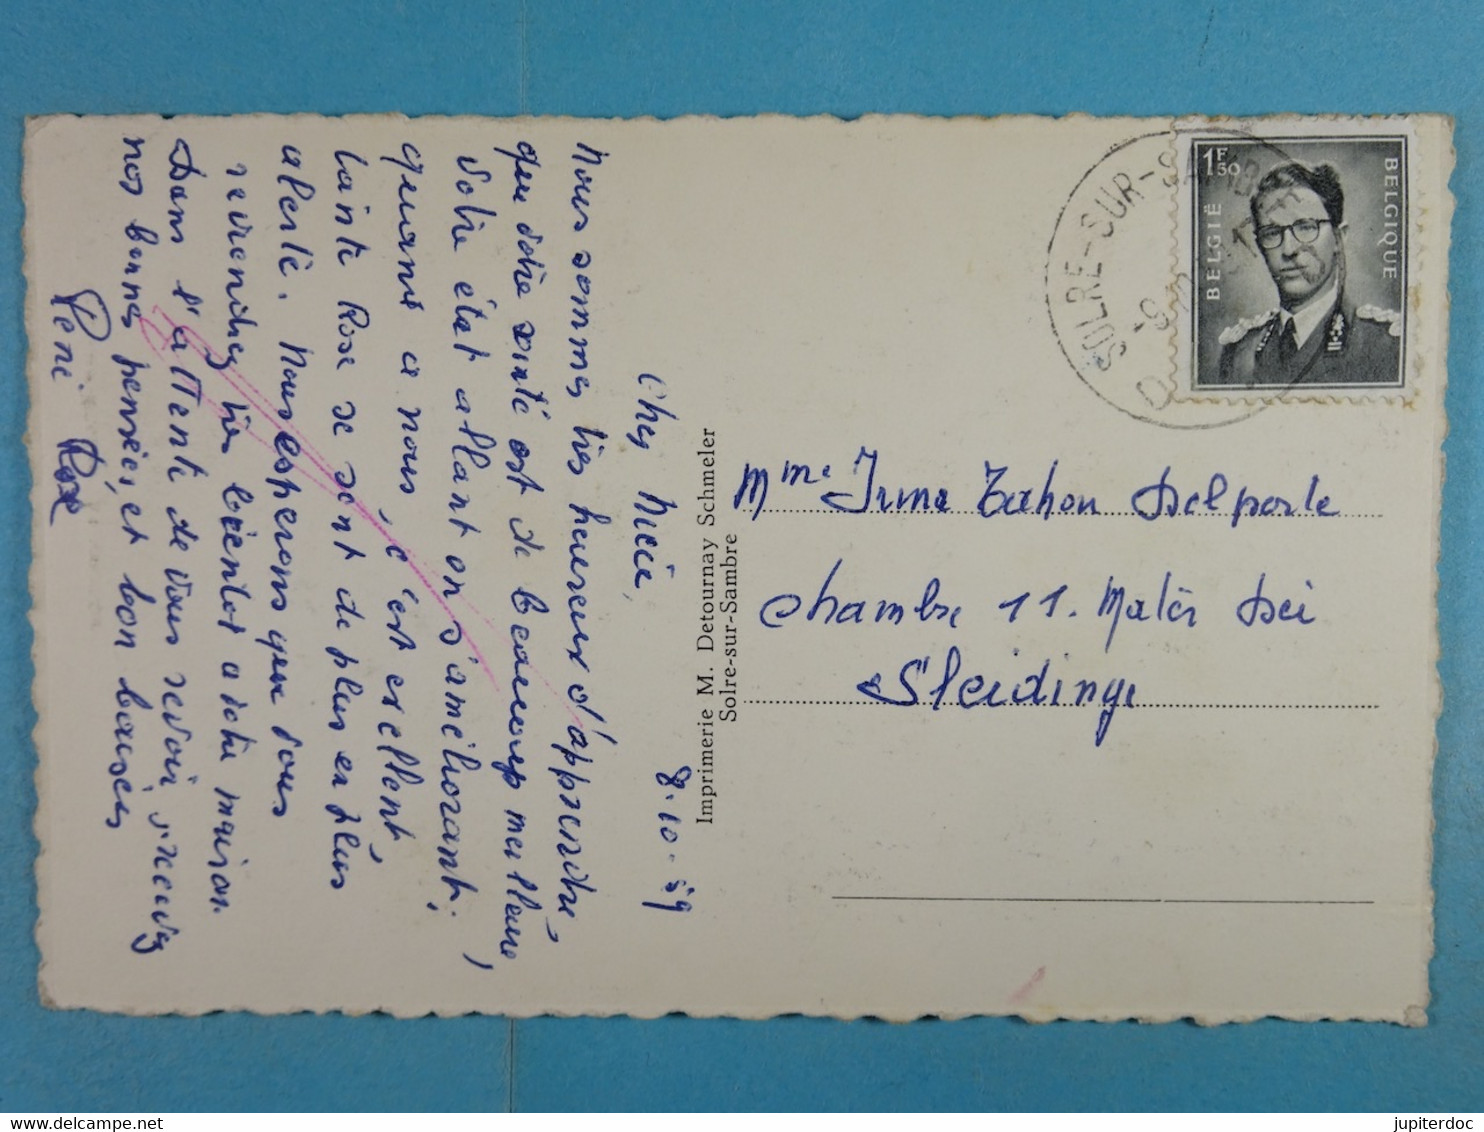 8-10-59
Chez Nièce,
Nous sommes très heureux d'apprendre
que votre santé est de beaucoup meilleure,
votre état allant en s'améliorant;
quant à nous, c'est excellent,
tante Rose se sent de plus en plus
alerte. Nous espérons que vous
reviendrez très bientôt à votre maison.
Dans l'attente de vous revoir, recevez
nos bonnes pensées, et bon baisers
René Rose
Imprimerie M. Detournay Schmeler
Solre-sur-Sambre
SOLRE-SUR-SAMBRE
1F50
BELGIË BELGIQUE
Mme Irma Tahon Delporte
Chambre 11. Mater Dei
Sleidinge
jupiterdoc
delcampe.net